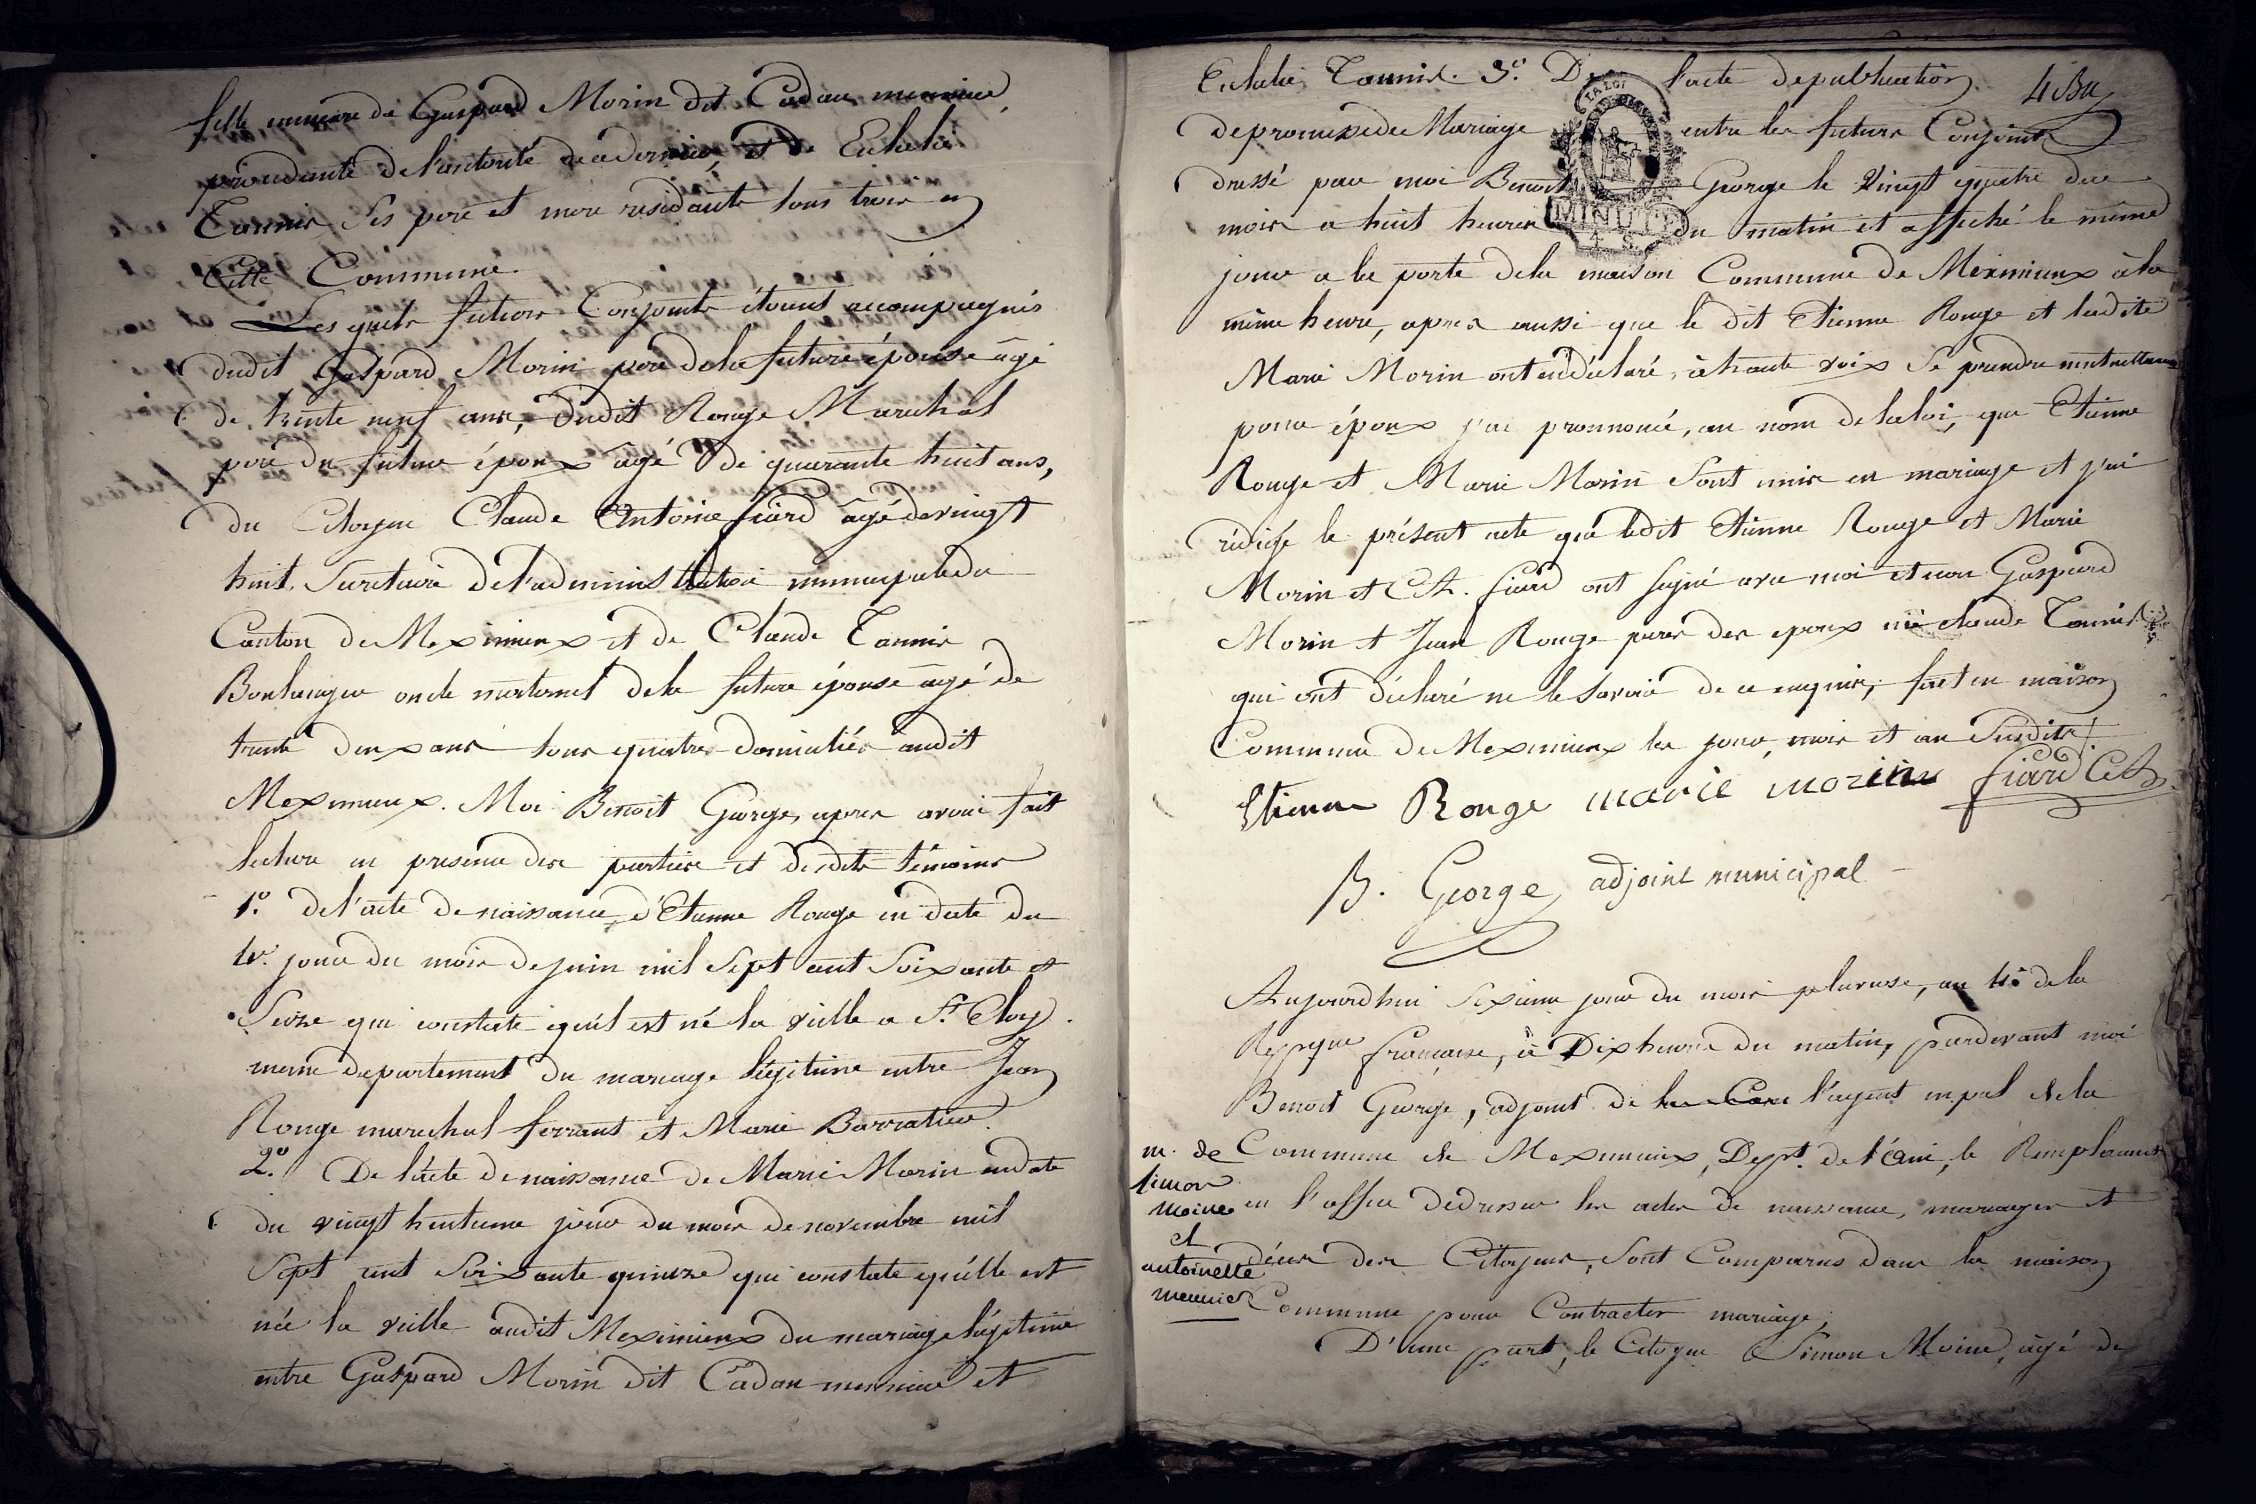 fille mineure de Gaspard Morin dit Cadau meunier
procedante de l'autorité de ce dernier et de Eulalie
Tannis ses pere et mere residants tous trois en
Cette Commune.
Les quels futurs Conjoints étants accompagnés
dudit Gaspard Morin pere dela future épouse âgé
de trente neuf ans, dudit Rouge Marechal
pere du futur époux âgé de quarante huit ans,
du Citoyen Claude Antoine fiard âgé de vingt
huit, Secretaire de l'administration municipale du
Canton de Meximieux et de Claude Tannis
Boulanger oncle maternel dela future épouse âgé de
trente deux ans tous quatre domiciliés audit
Meximieux. Moi Benoit George, apres avoir fait
lecture en presence des parties et desdits témoins
1°. de l'acte de naissance d'Etienne Rouge en date du
1er. jour du mois de juin mil Sept cent Soixante et
Seize qui constate qu'il est né la veille a St. Eloy
meme departement du mariage légitime entre Jean
Rouge marechal ferrant et Marie Barratier.
2° De l'acte de naissance de Marie Morin en date
du vingt huitieme jour du mois de novembre mil
Sept cent Soixante quinze qui constate qu'elle est
née la veille audit Meximieux du mariage légitime
entre Gaspard Morin dit Cadau meunier et
Eulalie Tannis. 3°. De l'acte de publication 4
LA LOI
MINUTE
de promesse de Mariage entre les futurs Conjoints
dressé par moi Benoit George le Vingt quatre du
mois a huit heures du matin et affiché le même
jour a la porte dela maison Commune de Meximieux à la
même heure, apres aussi que le dit Etienne Rouge et ladite
Marie Morin ont eu déclaré, à haute voix Se prendre mutuellement
pour époux j'ai prononcé, au nom de la loi, que Etienne
Rouge et Marie Morin Sont unis en mariage et j'ai
rédigé le présent acte que ledit Etienne Rouge et Marie
Morin et C A. fiard ont Signé avec moi et non Gaspard
Morin et Jean Rouge peres des epoux ni claude Tannis
qui ont déclaré ne le Savoir de ce enquis, fait en maison
Commune de Meximieux les jour, mois et an Susdits
Etienne Rouge marie morin fiard C A
B. George, adjoint municipal
Aujourdhui Sixieme jour du mois pluviose, an 4e dela
Repque française, à Dix heures du matin, pardevant moi
Benoit George, adjoint de l'agent m.pal de la
m. de Commune de Meximieux, Dept. de l'Ain, le Remplacant
simon
moine en l'office de dresser les actes de naissance, mariages et
et
antoinette décès des Citoyens, Sont Comparus dans la maison
meunier Commune pour Contracter mariage,
D'une part, le Citoyen Simon Moine, âgé de